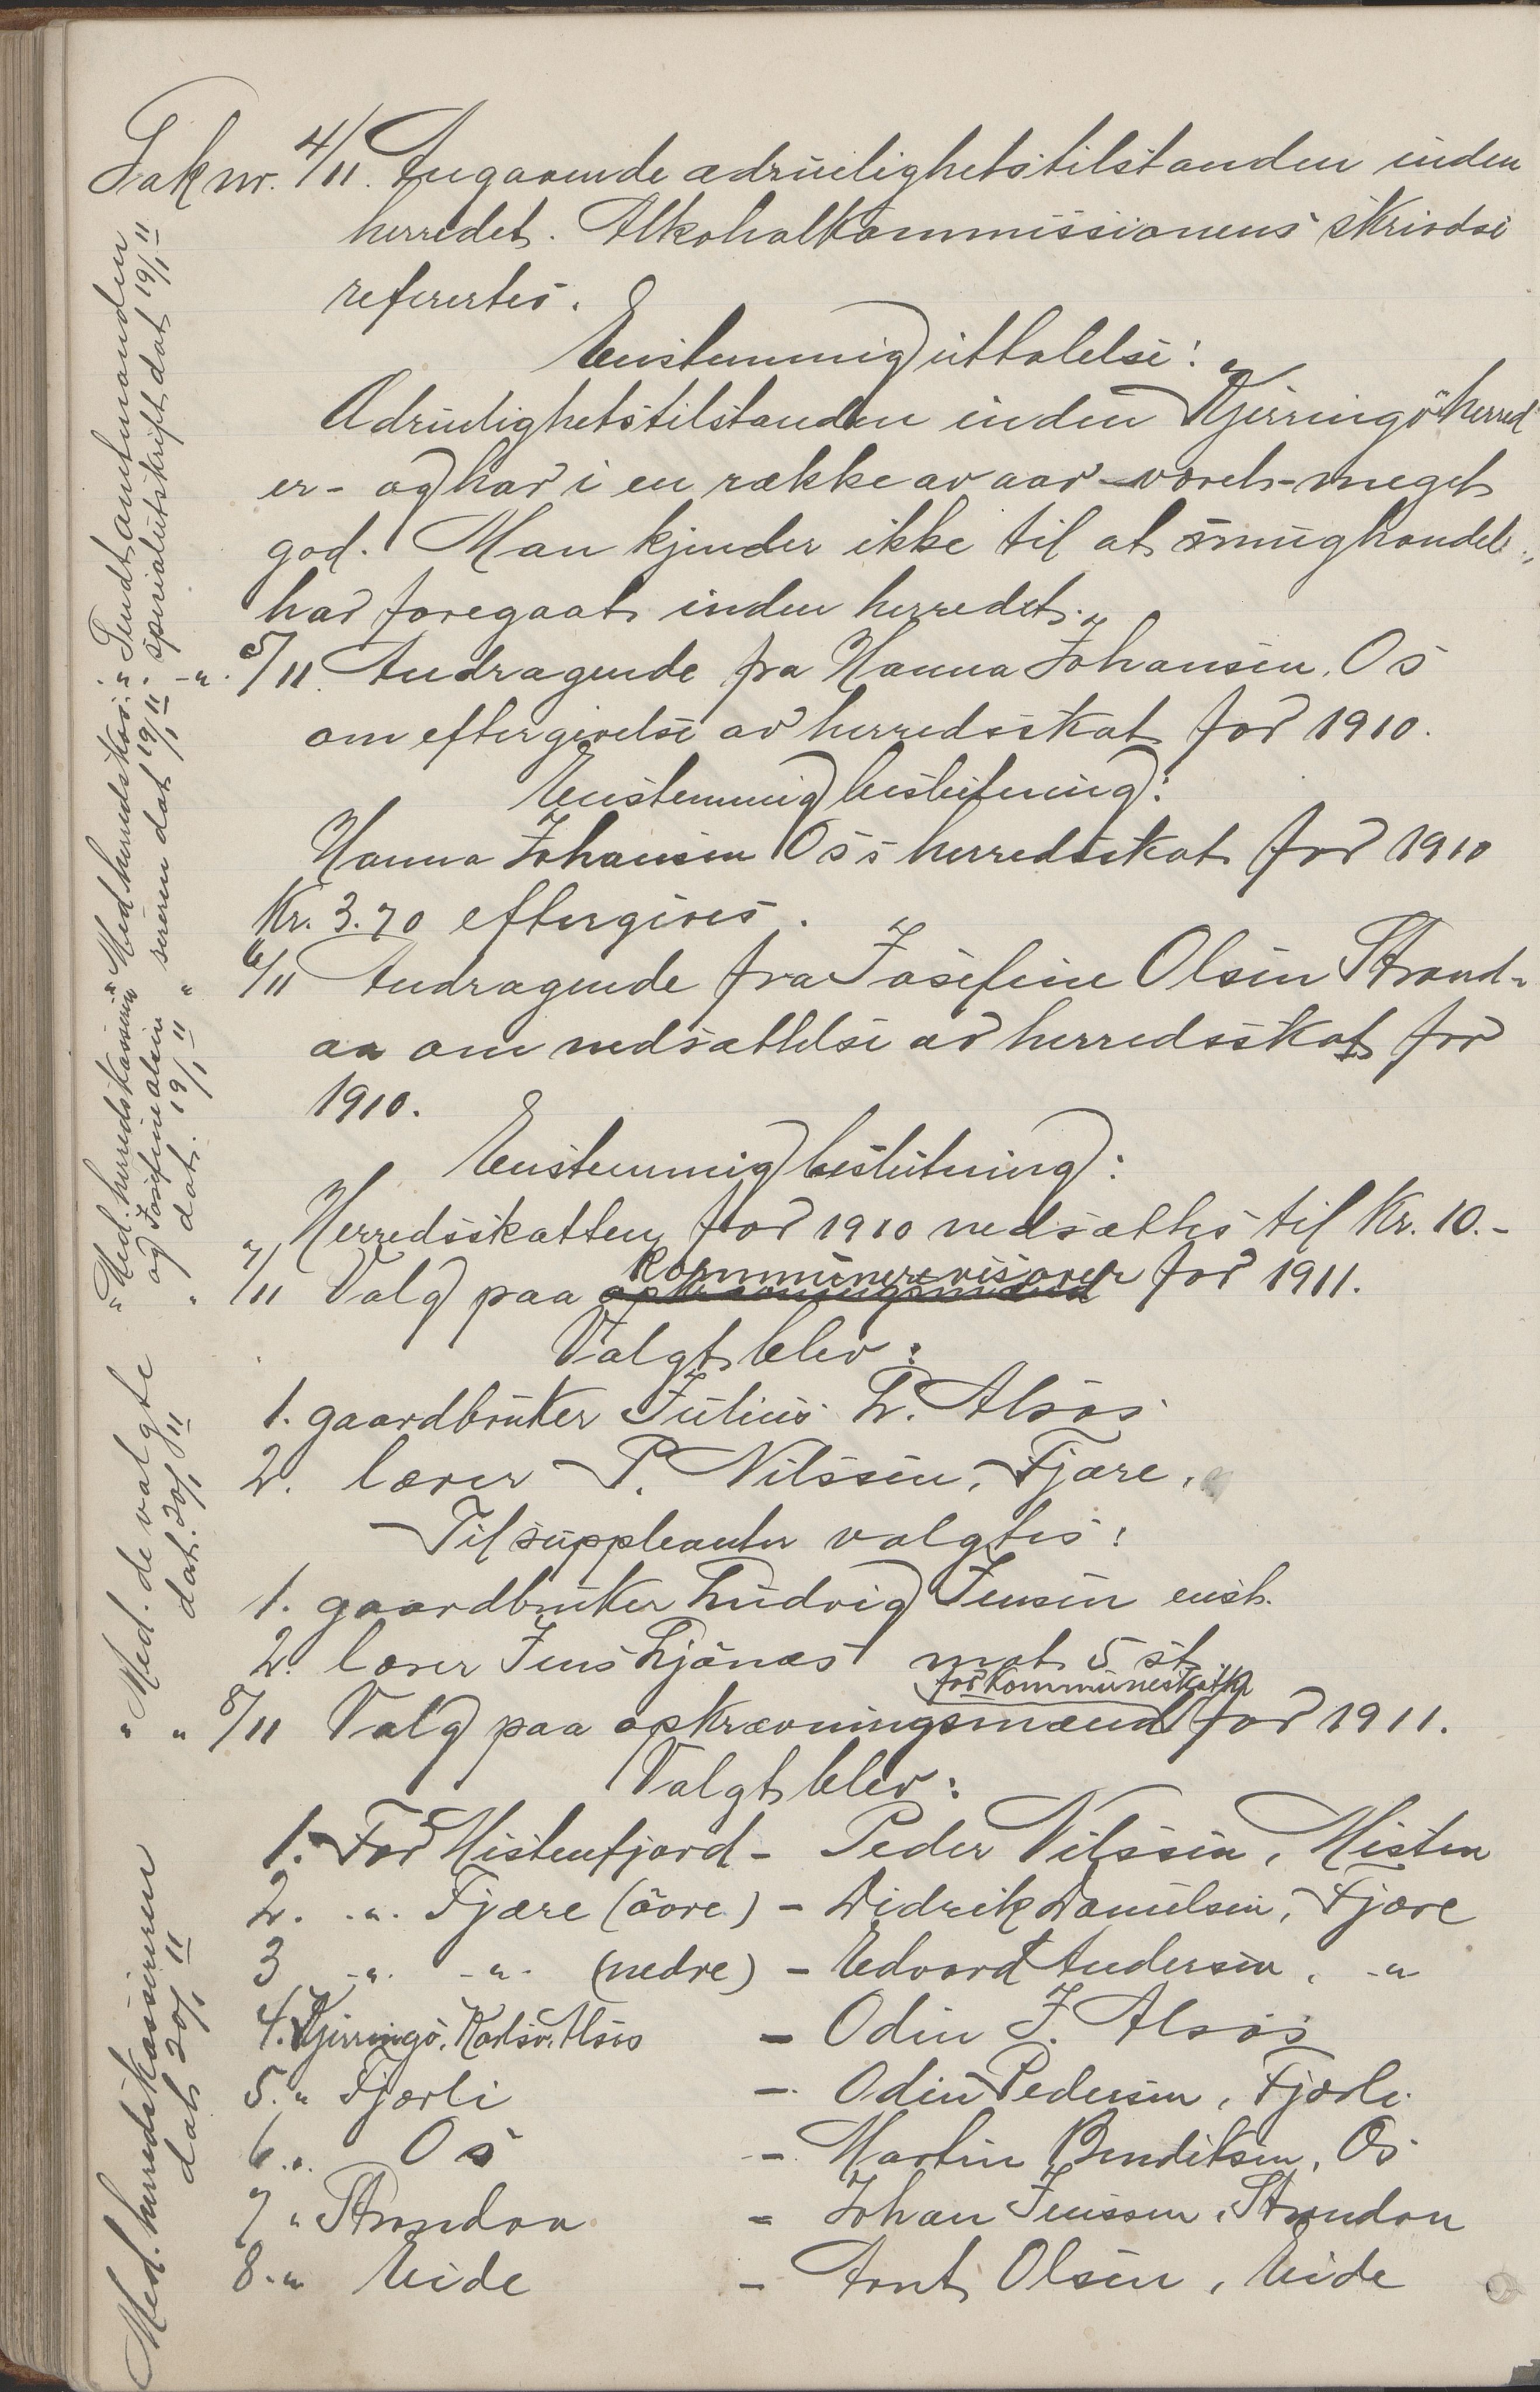 Sak nr. 4/11. Angaaende ædruelighetstilstanden inden
herredet. Alkoholkommissionens skrivelse
refertes.
Enstemmig uttalelse:
"Ædruelighetstilstanden inden Kjerringö herred
er - og har i en række av aar - været - meget
god. Man kjender ikke til at smughandel
har foregaat inden herredet."
-"- 5/11. Andragende fra Hanna Johansen, Os
om eftergivelse av herredsskat for 1910.
Enstemmig beslutning:
Hanna Johansen Os's herredsskat for 1910
Kr. 3.70 eftergives.
" 6/11 Andragende fra Josefine Olsen Strand-
aa om nedsættelse av herredsskat for
1910.
Enstemmig beslutning:
Herredsskatten for 1910 nedsættes til Kr. 10.-
" 7/11 Valg paa opkrævningsmænd kommunerevisorer for 1911.
Valgt blev:
1. gaardbruker Julius L. Alsos
2. lærer P. Nilssen, Fjære.
Til suppleanter valgtes:
1. gaardbruker Ludvig Jensen enst.
2. lærer Jens Ljönæs mot 5 st.
" 8/11 Valg paa opkrævningsmænd for kommuneskatten for 1911.
Valgt blev:
1. For Mistenfjord - Peder Nilssen, Misten
2. -"- Fjære (övre) - Didrik Danielsen, Fjære
3 -"- -"- (nedre) - Edvard Andersen, -"-
4. Kjerringö, Karlsö, Alsos - Odin J. Alsos
5. " Fjærli - Odin Pedersen, Fjærli
6. " Os - Martin Benditsen, Os
7 " Strandaa - Johan Jenssen, Strandaa
8. " Eide - Arnt Olsen, Eide
" Med. herredskassereren " Med herredskas. " Sendt amtmanden
og Josefine Olsen " sereren dat 19/1 11. specialutskrift dat 19/1 11
" dat. 19/1 11 "
" Med. de valgte
dat. 20/1 11
Med. herredskassereren
dat 20/1 11